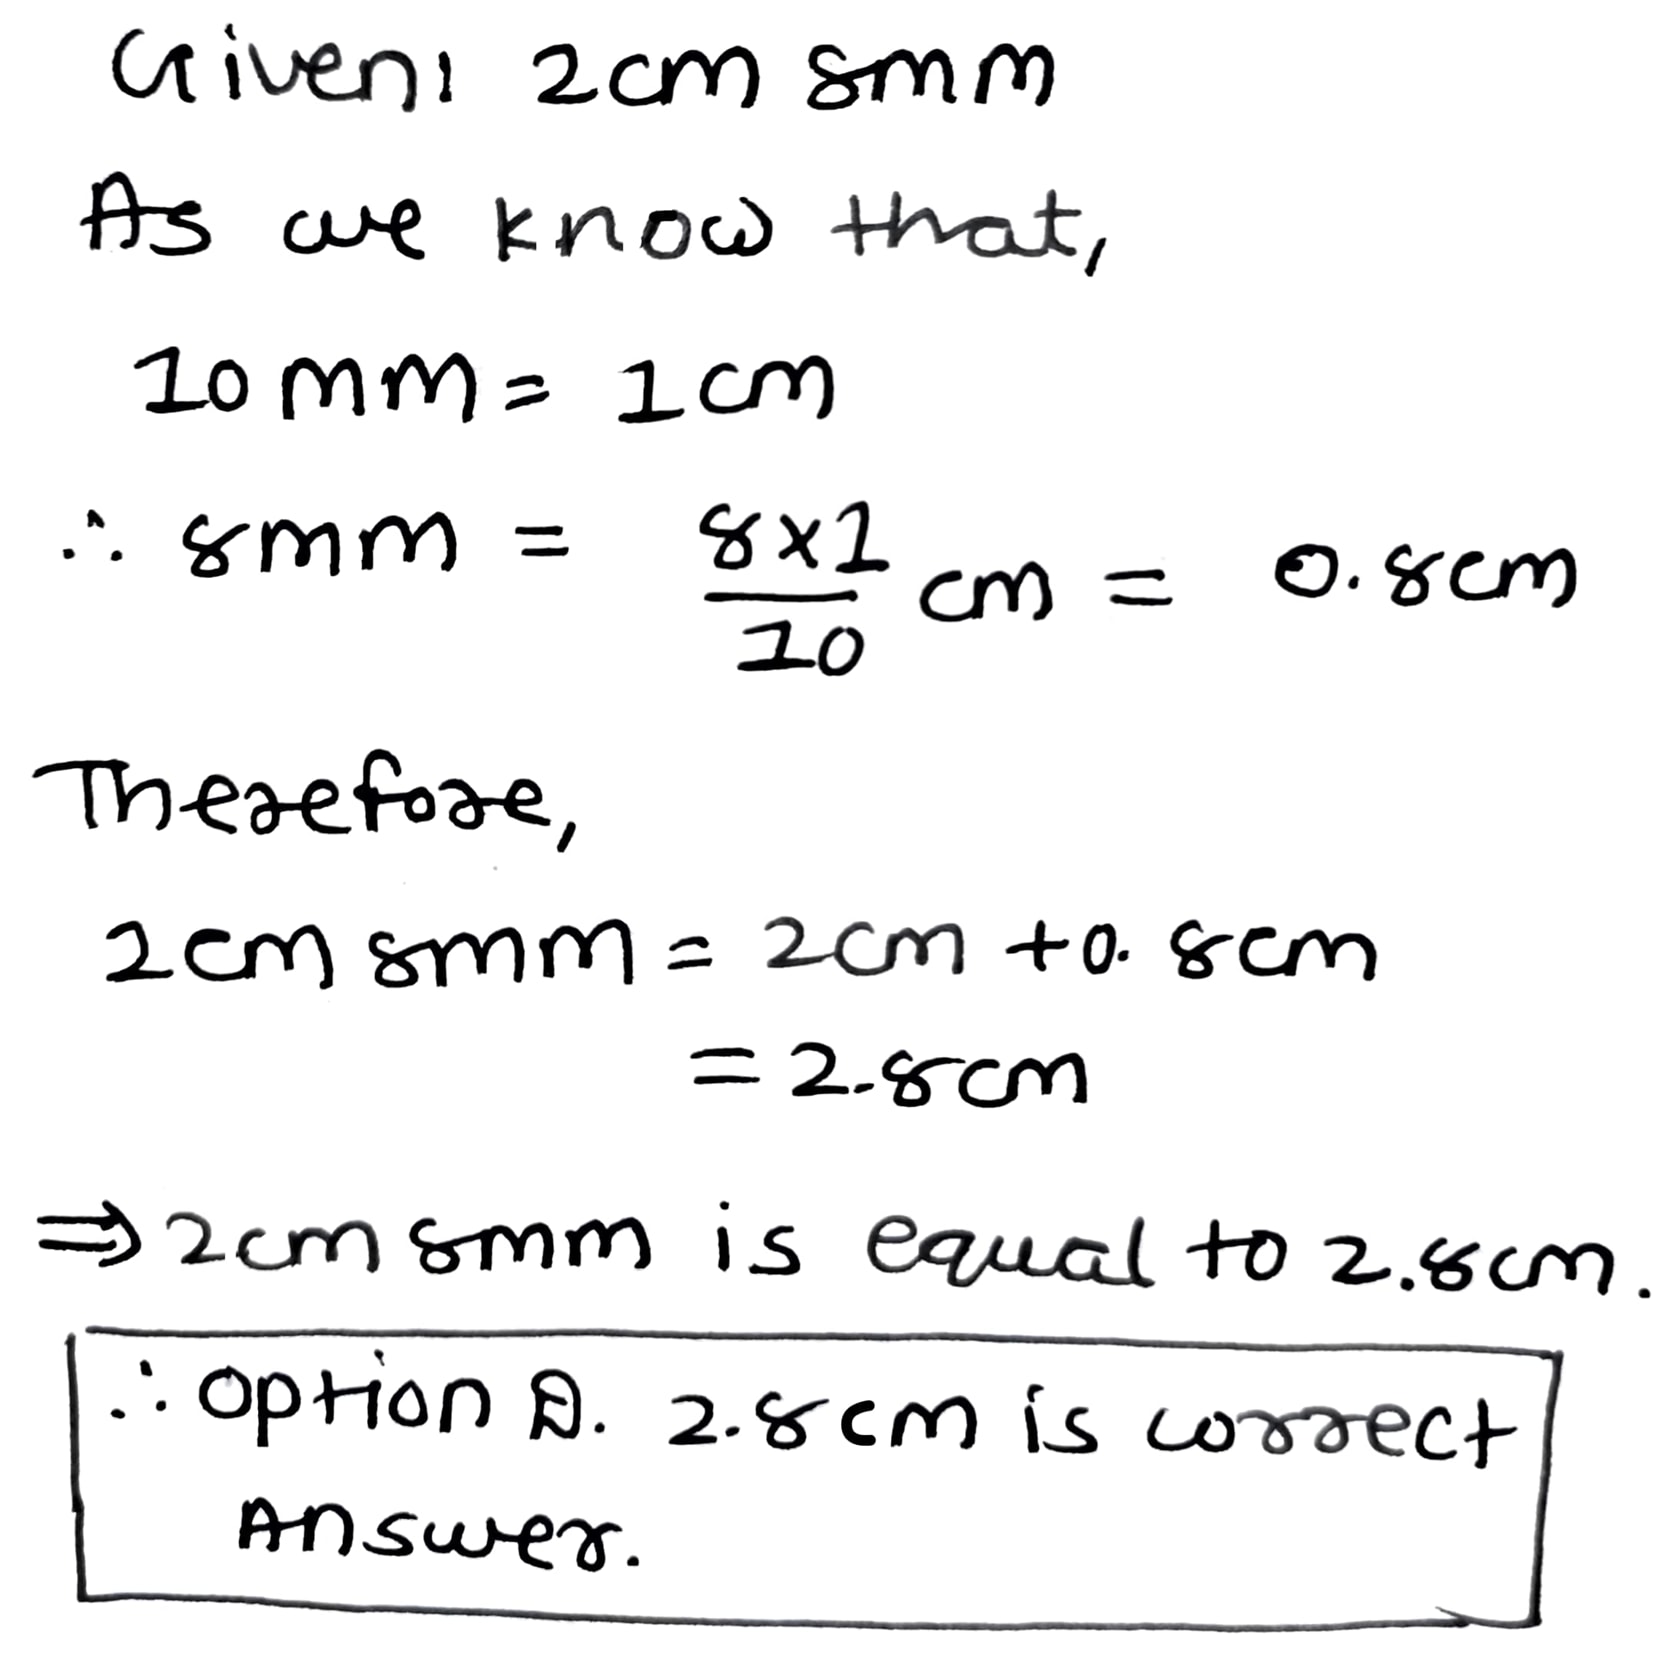 Given: 2cm 8mm
As we know that,
10 mm = 1cm
∴ 8mm = 8×1/10 cm = 0.8cm
Therefore,
2cm 8mm = 2cm +0.8cm
= 2.8cm
⇒ 2cm 8mm is equal to 2.8cm.
∴ option D. 2.8cm is correct
Answer.